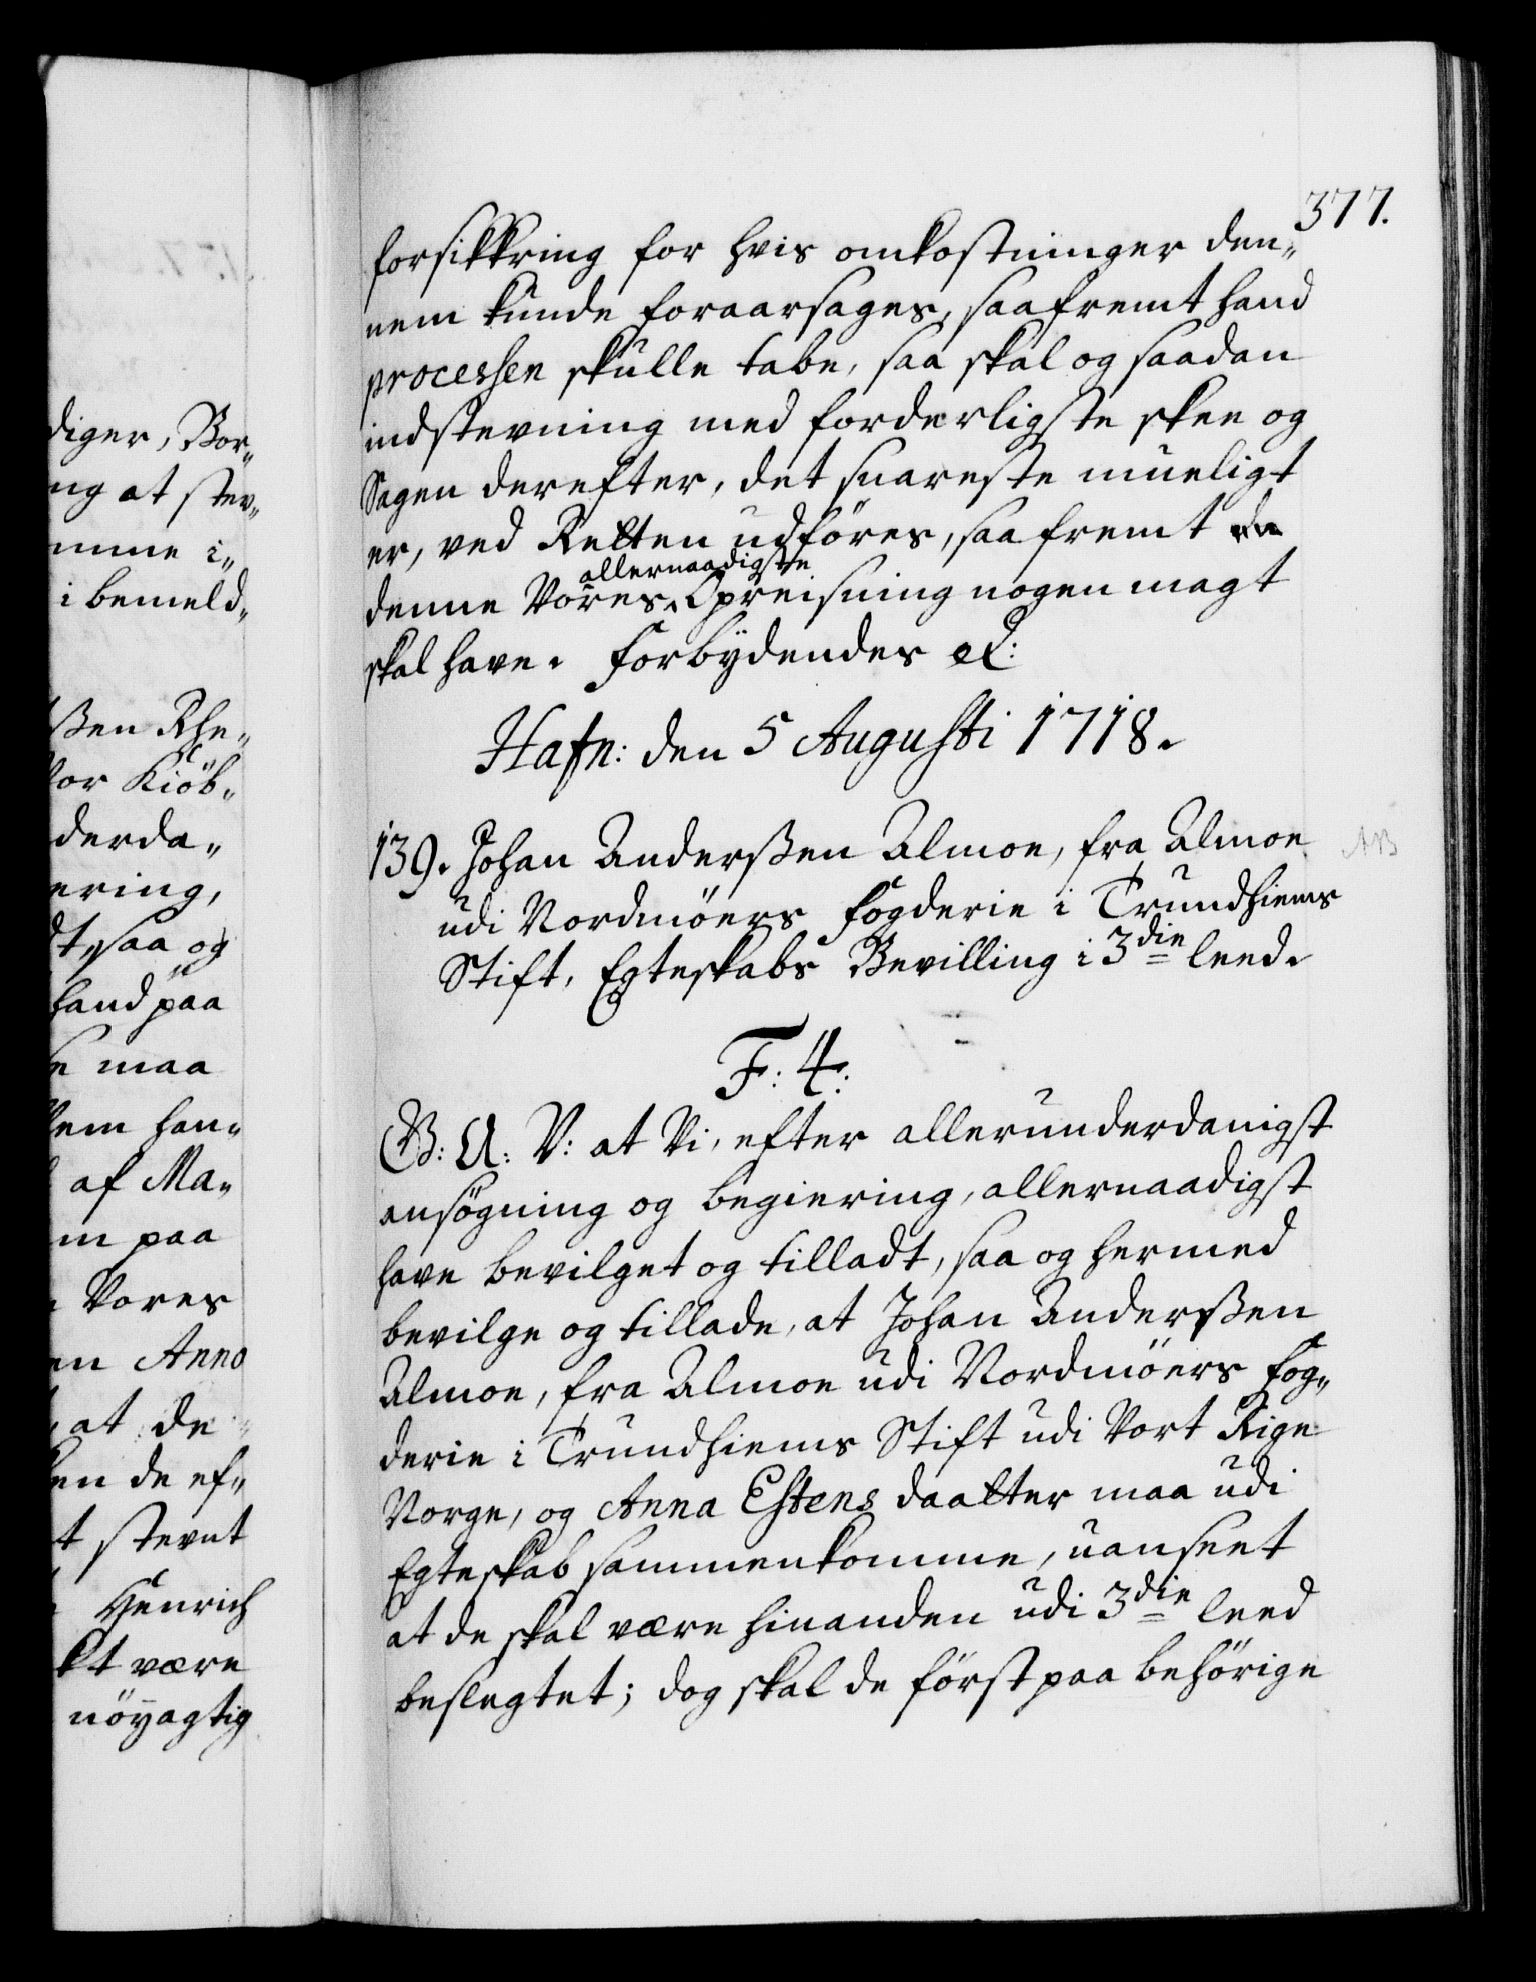 diger, Bor„
ng at stev„
mme i„
i bemeld„
ßen Rhe„
for Kiöb„
derda„
ering,
dt, saa og
hand paa
e maa
lem han„
af Ma„
m paa
Vores
en Anno
, at de
en de ef„
t stevnt
Henrich
kt være
nöyagtig
377.
forsikkring for hvis omkostninger den„
nem kunde foraarsages, saafremt hand
processen skulle tabe, saa skal og saadan
indstevning med forderligste skee og
Sagen derefter, det snareste mueligt
er, ved Retten udföres, saa fremt de
allernaadigste
denne Vores Opreisning nogen magt
skal have. Forbydendes &:
Hafn: den 5 Augusti 1718.
139. Johan Anderßen Almoe, fra Almoe
udi Nordmöers Fogderie i Trundhiems
Stift, Egteskabs Bevilling i 3die leed.
F: 4:
G: A: V: at Vi, efter allerunderdanigst
ansögning og begiering, allernaadigst
have bevilget og tilladt, saa og hermed
bevilge og tillade, at Johan Anderßen
Almoe, fra Almoe udi Nordmöers Fog„
derie i Trundhiems Stift udi Vort Rige
Norge, og Anna Estens daatter maa udi
Egteskab sammenkomme, uanseet
at de skal være hinanden udi 3die leed
beslegtet; dog skal de först paa behörige